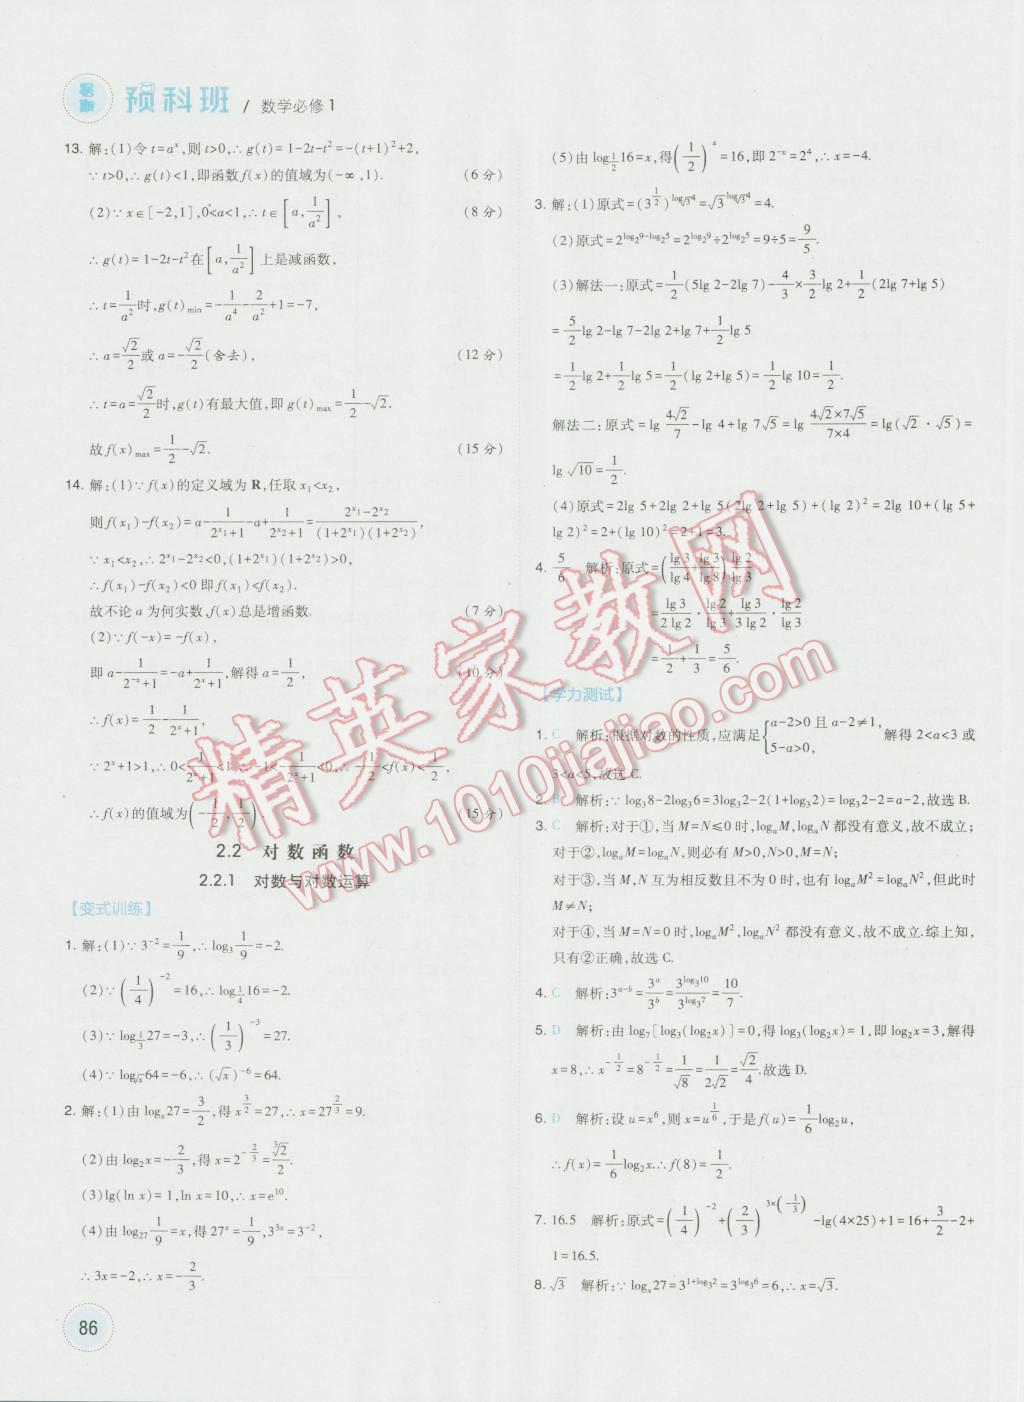 暑期 预科班 / 数学必修1
13. 解:(1)令 t=a^x,则 t>0,∴ g(t)=1-2t-t^2=-(t+1)^2+2,
∵ t>0,∴ g(t)<1,即函数 f(x)的值域为(-∞,1). (6分)
(2)∵ x∈[-2,1],0<a<1,∴ t∈[a,1/a^2], (8分)
∴ g(t)=1-2t-t^2在[a,1/a^2]上是减函数,
∴ t=1/a^2时,g(t)min=-1/a^4-2/a^2+1=-7,
∴ a=√2/2或 a=-√2/2(舍去), (12分)
∴ t=a=√2/2时,g(t)有最大值,即 g(t)max=1/2-√2.
故 f(x)max=1/2-√2. (15分)
14. 解:(1)∵ f(x)的定义域为 R,任取 x1<x2,
则 f(x1)-f(x2)=a-1/(2^x1+1)-a+1/(2^x2+1)=(2^x1-2^x2)/((1+2^x1)(1+2^x2)),
∵ x1<x2,∴ 2^x1-2^x2<0,(1+2^x1)(1+2^x2)>0,
∴ f(x1)-f(x2)<0 即 f(x1)<f(x2).
故不论 a 为何实数,f(x)总是增函数. (7分)
(2)∵ f(-x)=-f(x),
即 a-1/(2^-x+1)=-a+1/(2^x+1),解得 a=1/2, (10分)
∴ f(x)=1/2-1/(2^x+1),
∵ 2^x+1>1,∴ 0<1/(2^x+1)<1,∴ -1<-1/(2^x+1)<0,∴ -1/2<f(x)<1/2,
∴ f(x)的值域为(-1/2,1/2). (15分)
2.2 对数函数
2.2.1 对数与对数运算
【变式训练】
1. 解:(1)∵ 3^-2=1/9,∴ log_3 1/9=-2.
(2)∵ (1/4)^-2=16,∴ log_1/4 16=-2.
(3)∵ log_1/3 27=-3,∴ (1/3)^-3=27.
(4)∵ log_√x 64=-6,∴ (√x)^-6=64.
2. 解:(1)由 log_x 27=3/2,得 x^3/2=27,∴ x=27^2/3=9.
(2)由 log_2 x=-2/3,得 x=2^-2/3=∛2/2.
(3)lg(ln x)=1,ln x=10,∴ x=e^10.
(4)由 log_27 1/9=x,得 27^x=1/9,3^3x=3^-2,
∴ 3x=-2,∴ x=-2/3.
(5)由 log_1/2 16=x,得(1/2)^x=16,即 2^-x=2^4,∴ x=-4.
3. 解:(1)原式=(3^1/2)^log_√3 4=√3^log_√3 4=4.
(2)原式=2^(log_2 9-log_2 5)=2^log_2 9÷2^log_2 5=9÷5=9/5.
(3)解法一:原式=1/2(5lg 2-2lg 7)-4/3×3/2lg 2+1/2(2lg 7+lg 5)
=5/2lg 2-lg 7-2lg 2+lg 7+1/2lg 5
=1/2lg 2+1/2lg 5=1/2(lg 2+lg 5)=1/2lg 10=1/2.
解法二:原式=lg 4√2/7-lg 4+lg 7√5=lg (4√2×7√5)/(7×4)=lg(√2·√5)=
lg √10=1/2.
(4)原式=2lg 5+2lg 2+lg 5(2lg 2+lg 5)+(lg 2)^2=2lg 10+(lg 5+
lg 2)^2=2+(lg 10)^2=2+1=3.
4. 5/6 解析:原式=(lg 3/lg 4+lg 3/lg 8)lg 2/lg 3
=lg 3/2lg 2·lg 2/lg 3+lg 3/3lg 2·lg 2/lg 3
=1/2+1/3=5/6.
【学力测试】
1. C 解析:根据对数的性质,应满足{a-2>0 且 a-2≠1, 5-a>0, 解得 2<a<3 或
3<a<5,故选 C.
2. B 解析:∵ log_3 8-2log_3 6=3log_3 2-2(1+log_3 2)=log_3 2-2=a-2,故选 B.
3. C 解析:对于①,当 M=N≤0 时,log_a M,log_a N 都没有意义,故不成立;
对于②,log_a M=log_a N,则必有 M>0,N>0,M=N;
对于③,当 M,N 互为相反数且不为 0 时,也有 log_a M^2=log_a N^2,但此时
M≠N;
对于④,当 M=N=0 时,log_a M^2,log_a N^2 都没有意义,故不成立.综上知,
只有②正确,故选 C.
4. C 解析:3^(a-b)=3^a/3^b=3^log_3 10/3^log_3 7=10/7.
5. D 解析:由 log_7[log_3(log_2 x)]=0,得 log_3(log_2 x)=1,即 log_2 x=3,解得
x=8,∴ x^-1/2=8^-1/2=1/√8=1/2√2=√2/4.故选 D.
6. D 解析:设 u=x^6,则 x=u^1/6,于是 f(u)=1/6log_2 u,
∴ f(x)=1/6log_2 x.∴ f(8)=1/2.
7. 16.5 解析:原式=(1/4)^-2+(2/3)^3×(-1/3)-lg(4×25)+1=16+3/2-2+
1=16.5.
8. √3 解析:∵ log_x 27=3^(1+log_3 2)=3^log_3 6=6,∴ x=√3.
精英家教网
www.1010jiajiao.com
86